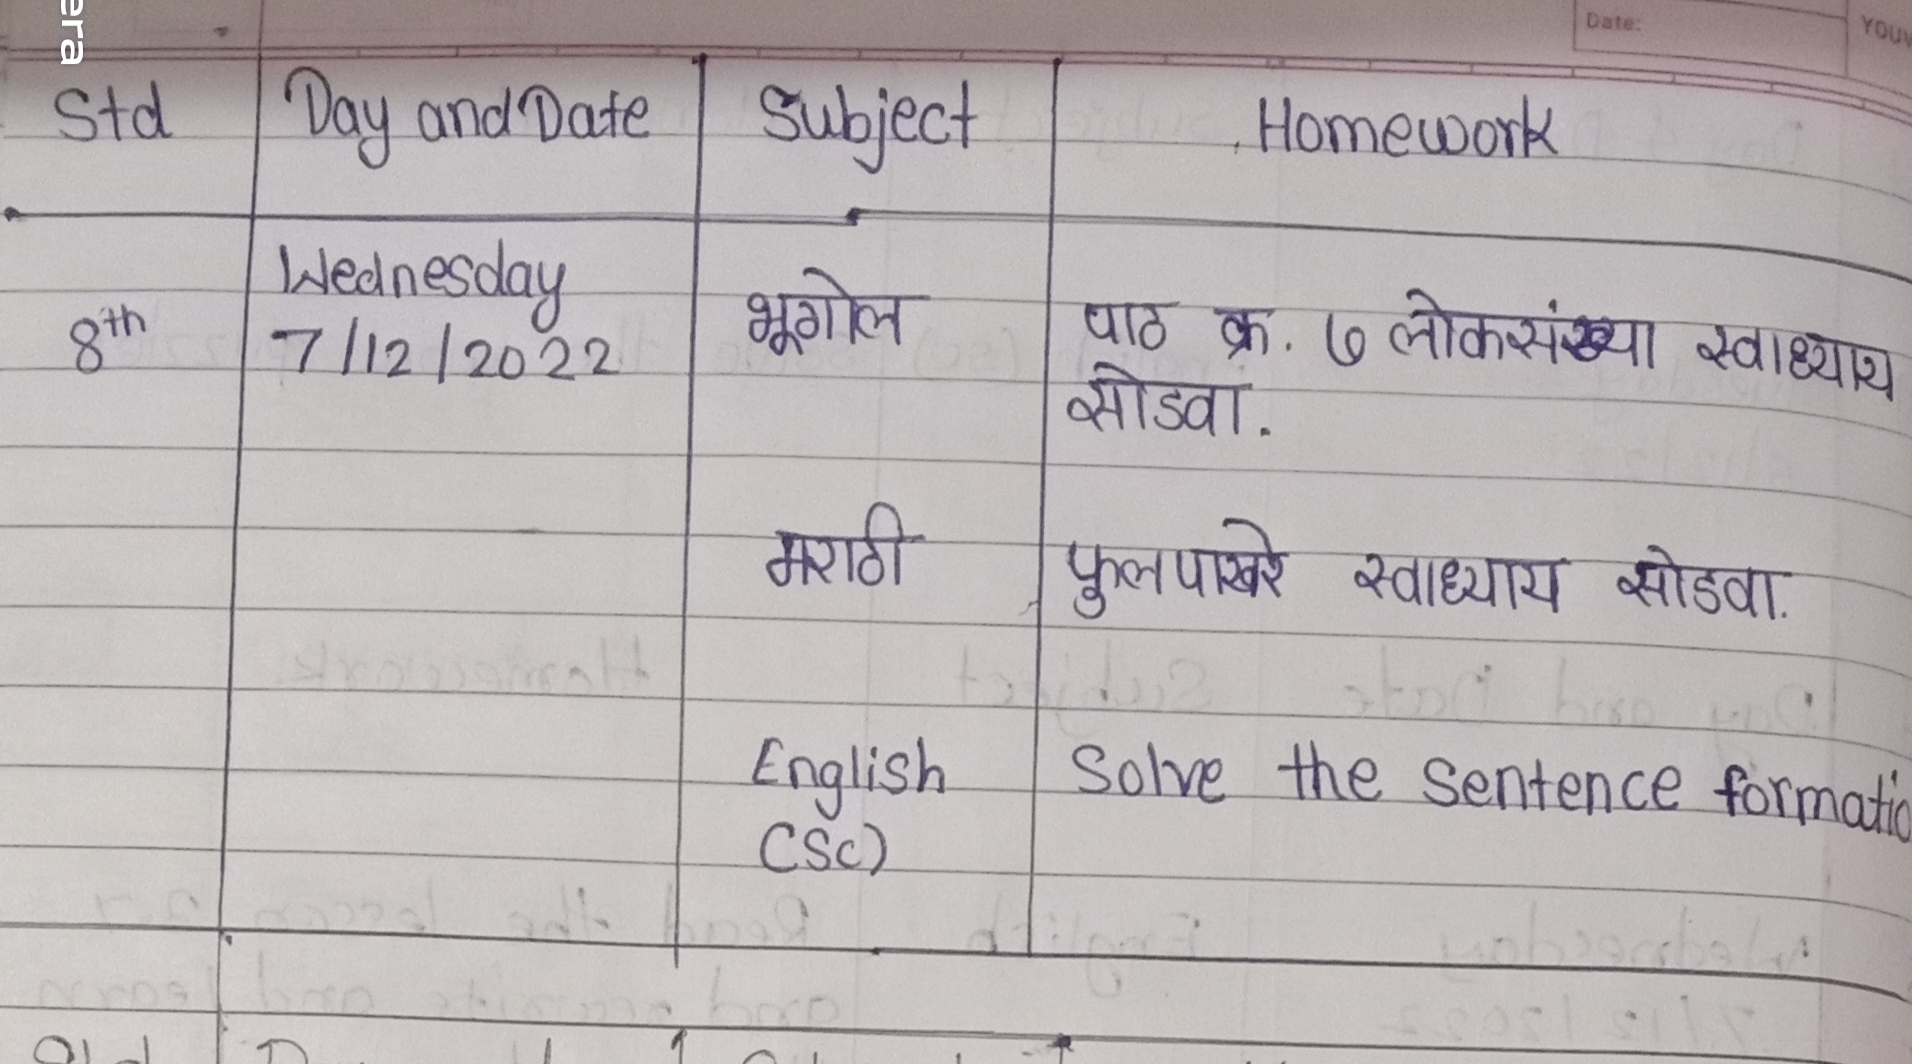 era
Date:
Std Day and Date Subject Homework
Wednesday
8th 7/12/2022 भूगोल पाठ क्र. ७ लोकसंख्या स्वाध्याय
सोडवा.
मराठी फुलपाखरे स्वाध्याय सोडवा.
English Solve the sentence formatio
(Sc)